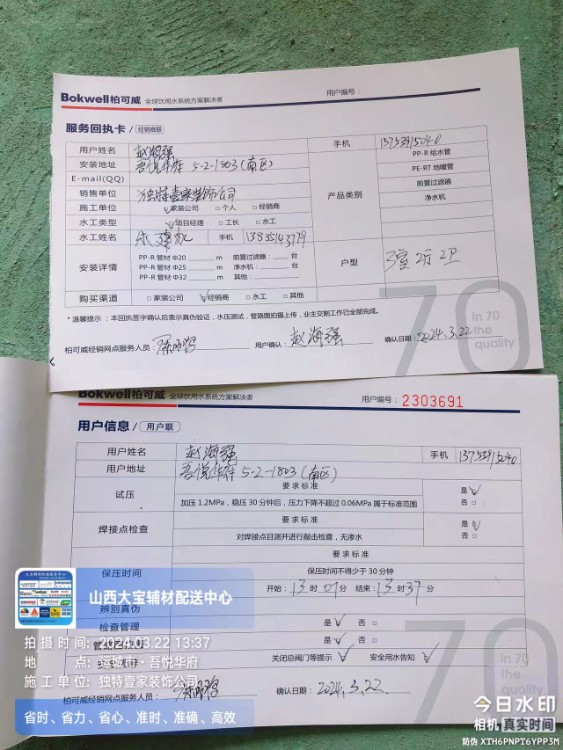 Bokwell柏可威 全球饮用水系统方案解决者 用户编号：
服务回执卡 / 经销商联
用户姓名 赵海强 手机
安装地址 吾悦华府 5-2-1803（南区） PP-R 给水管
E-mail(QQ) PE-RT 地暖管
销售单位 独特壹家装饰公司 产品类别 前置过滤器
施工单位 家装公司 □ 个人 □ 经销商 净水机
水工类型 项目经理 □ 工长 □ 水工
水工姓名 手机
安装详情 PP-R 管材 Φ20 m 前置过滤器： 台 户型 3室 2厅 2卫
PP-R 管材 Φ25 m 净水机： 台
PP-R 管材 Φ32 m 其他：
购买渠道 □ 家装公司 经销商 □ 水工 □ 其他
* 温馨提示 ：本回执签字确认后表示真伪验证，水压测试，管路图拍摄上传，业主交期工作已全部完成。
柏可威经销网点服务人员： 用户确认： 赵海强 确认日期： 2024.3.22
70 In 70 the quality
Bokwell柏可威 全球饮用水系统方案解决者 用户编号： 2303691
用户信息 / 用户联
用户姓名 赵海强 手机
用户地址 吾悦华府 5-2-1803（南区）
试压 要求标准 是 √
加压 1.2MPa，稳压 30 分钟后，压力下降不超过 0.06MPa 属于标准范围 否 □
焊接点检查 要求标准 是 √
对焊接点目测并进行敲击检查，无渗水 否 □
保压时间 要求标准
保压时间不得少于 30 分钟
开始：13 时 07 分 结束：13 时 37 分
辨别真伪 是 √ 否 □
检查管理
是 √ 否 □
关闭总阀门等提示 √ 安全用水告知 √
柏可威经销网点服务人员： 确认日期： 2024.3.22
70 In 70 the quality
山西大宝辅材配送中心
拍 摄 时 间： 2024.03.22 13:37
地 点： 运城市·吾悦华府
施 工 单 位： 独特壹家装饰公司
省时、省力、省心、准时、准确、高效
今日水印
相机 真实时间
防伪 XIH6PNPT6YPP3M